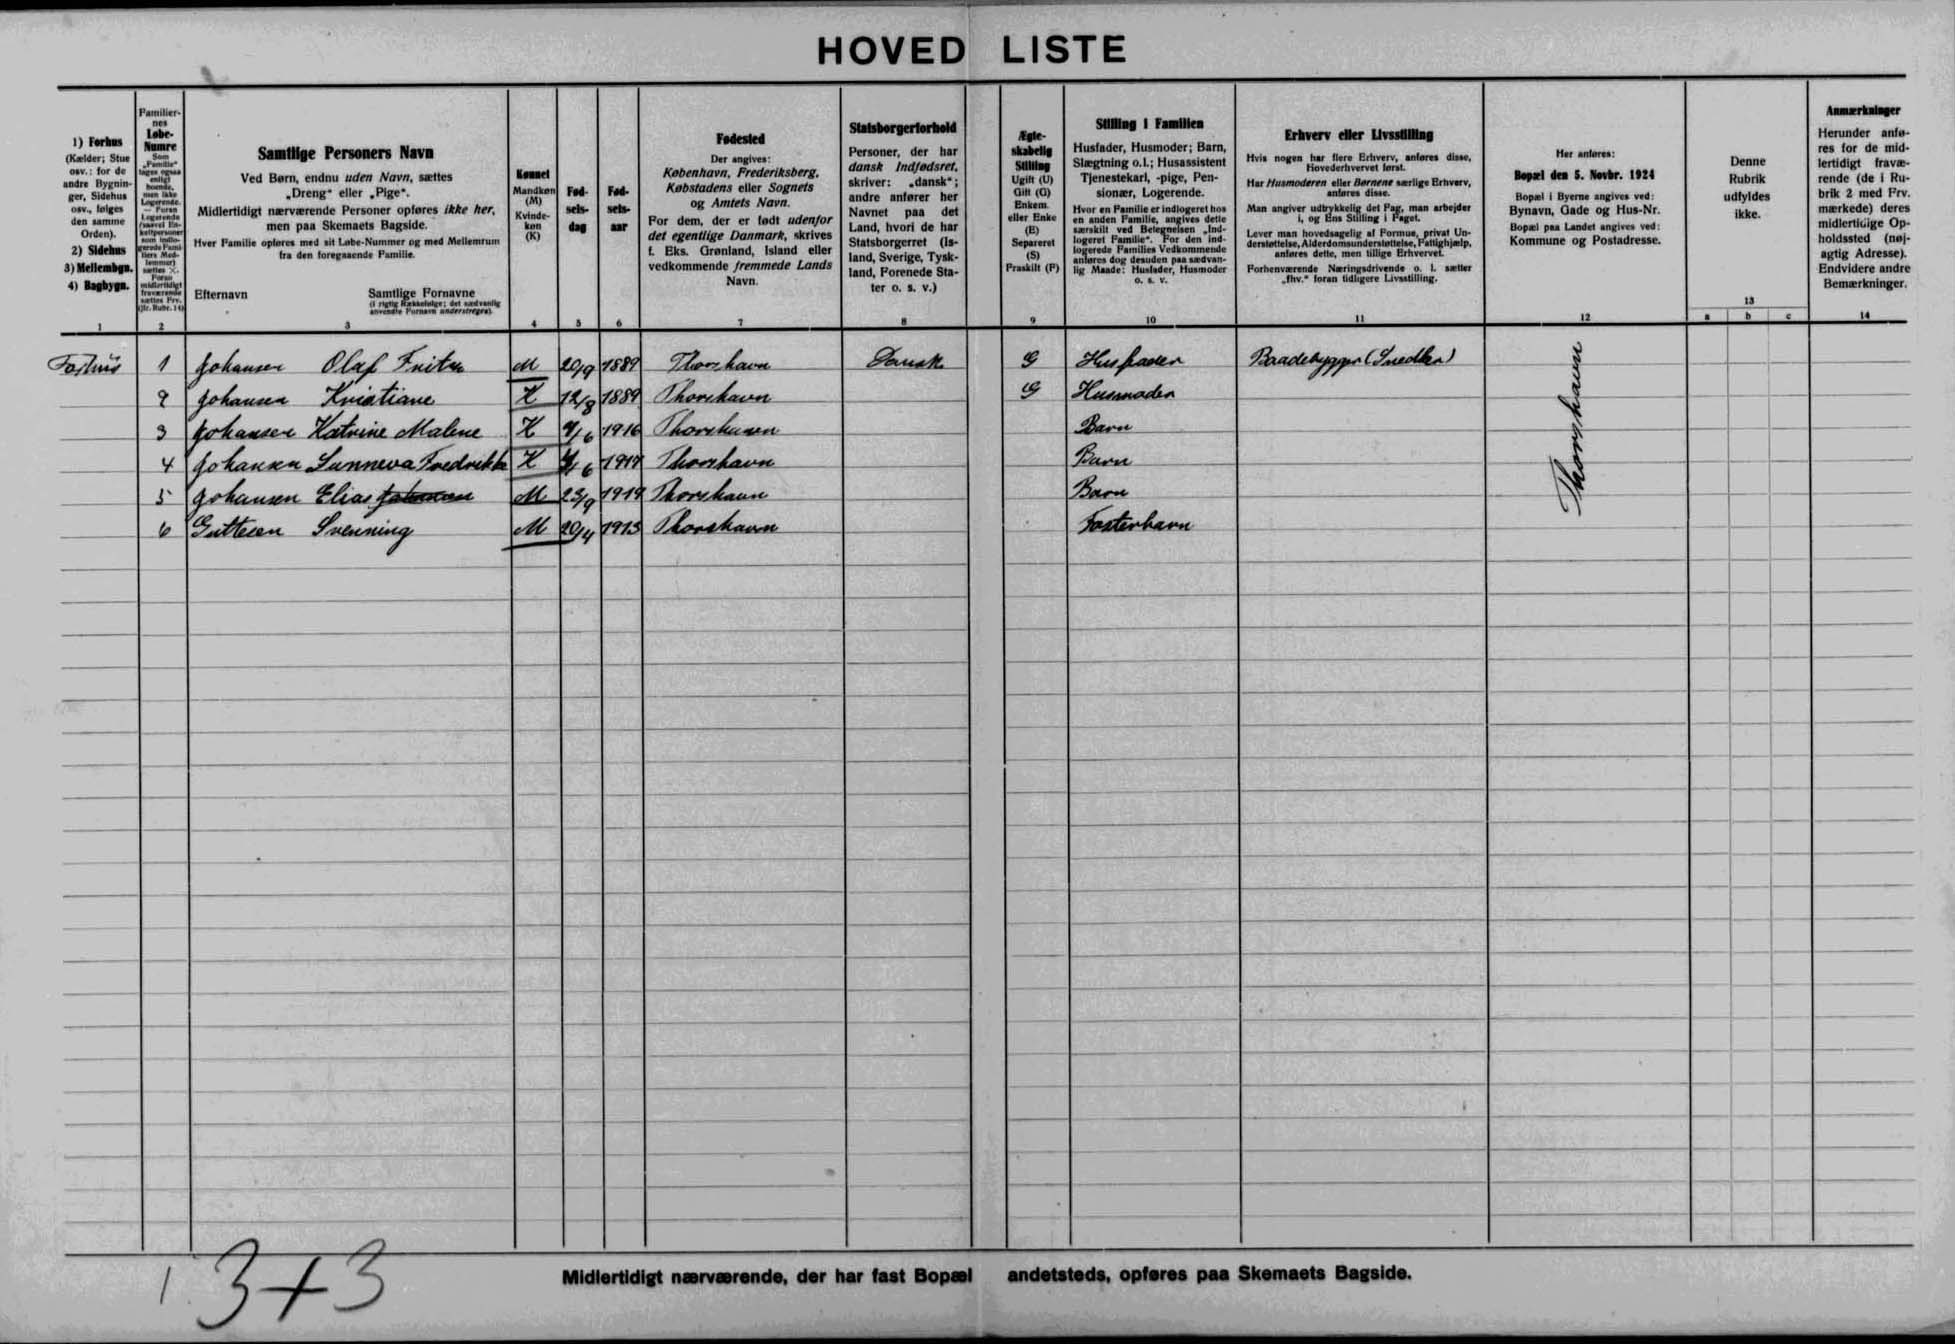 HOVED LISTE
1) Forhus
(Kælder; Stue
osv.: for de
andre Bygnin-
ger, Sidehus
osv., følges
den samme
Orden).
2) Sidehus
3) Mellembgn.
4) Bagbygn.
1
Familier-
nes
Løbe-
Numre
Som
„Familie“
tages ogsaa
enligt
boende,
men ikke
Logerende.
— Foran
Logerende
(saavel En-
keltpersoner
som indlo-
gerede Fami-
liers Med-
lemmer)
sættes ×.
Foran
midlertidigt
fraværende
sættes Frv.
(jfr. Rubr. 14)
2
Samtlige Personers Navn
Ved Børn, endnu uden Navn, sættes
„Dreng“ eller „Pige“.
Midlertidigt nærværende Personer opføres ikke her,
men paa Skemaets Bagside.
Hver Familie opføres med sit Løbe-Nummer og med Mellemrum
fra den foregaaende Familie.
Efternavn
Samtlige Fornavne
(i rigtig Rækkefølge; det sædvanlig
anvendte Fornavn understreges).
3
Kønnet
Mandkøn
(M)
Kvinde-
køn
(K)
4
Fød-
sels-
dag
5
Fød-
sels-
aar
6
Fødested
Der angives:
København, Frederiksberg,
Købstadens eller Sognets
og Amtets Navn.
For dem, der er født udenfor
det egentlige Danmark, skrives
f. Eks. Grønland, Island eller
vedkommende fremmede Lands
Navn.
7
Statsborgerforhold
Personer, der har
dansk Indfødsret,
skriver: „dansk“;
andre anfører her
Navnet paa det
Land, hvori de har
Statsborgerret (Is-
land, Sverige, Tysk-
land, Forenede Sta-
ter o. s. v.)
8
Ægte-
skabelig
Stilling
Ugift (U)
Gift (G)
Enkem.
eller Enke
(E)
Separeret
(S)
Fraskilt (F)
9
Stilling i Familien
Husfader, Husmoder; Barn,
Slægtning o.l.; Husassistent
Tjenestekarl, -pige, Pen-
sionær, Logerende.
Hvor en Familie er indlogeret hos
en anden Familie, angives dette
særskilt ved Betegnelsen „Ind-
logeret Familie“. For den ind-
logerede Families Vedkommende
anføres dog desuden paa sædvan-
lig Maade: Husfader, Husmoder
o. s. v.
10
Erhverv eller Livsstilling
Hvis nogen har flere Erhverv, anføres disse,
Hovederhvervet først.
Har Husmoderen eller Børnene særlige Erhverv,
anføres disse.
Man angiver udtrykkelig det Fag, man arbejder
i, og Ens Stilling i Faget.
Lever man hovedsagelig af Formue, privat Un-
derstøttelse, Alderdomsunderstøttelse, Fattighjælp,
anføres dette, men tillige Erhvervet.
Forhenværende Næringsdrivende o. l. sætter
„fhv.“ foran tidligere Livsstilling.
11
Her anføres:
Bopæl den 5. Novbr. 1924
Bopæl i Byerne angives ved:
Bynavn, Gade og Hus-Nr.
Bopæl paa Landet angives ved:
Kommune og Postadresse.
12
Denne
Rubrik
udfyldes
ikke.
13
a b c
Anmærkninger
Herunder anfø-
res for de mid-
lertidigt fravæ-
rende (de i Ru-
brik 2 med Frv.
mærkede) deres
midlertidige Op-
holdssted (nøj-
agtig Adresse).
Endvidere andre
Bemærkninger.
14
Forhus 1 Johansen Olaf Fritz M 20/9 1889 Thorshavn Dansk G Husfader Baadebygger (Snedker)
2 Johansen Kristiane K 12/8 1889 Thorshavn G Husmoder
3 Johansen Katrine Malene K 1916 Thorshavn Barn
4 Johansen Sunneva Fredrikke K 1917 Thorshavn Barn
5 Johansen Elias M 23/9 1919 Thorshavn Barn
6 Guttesen Svenning M 20/4 1913 Thorshavn Fosterbarn
Thorshavn
Midlertidigt nærværende, der har fast Bopæl andetsteds, opføres paa Skemaets Bagside.
1 3+3